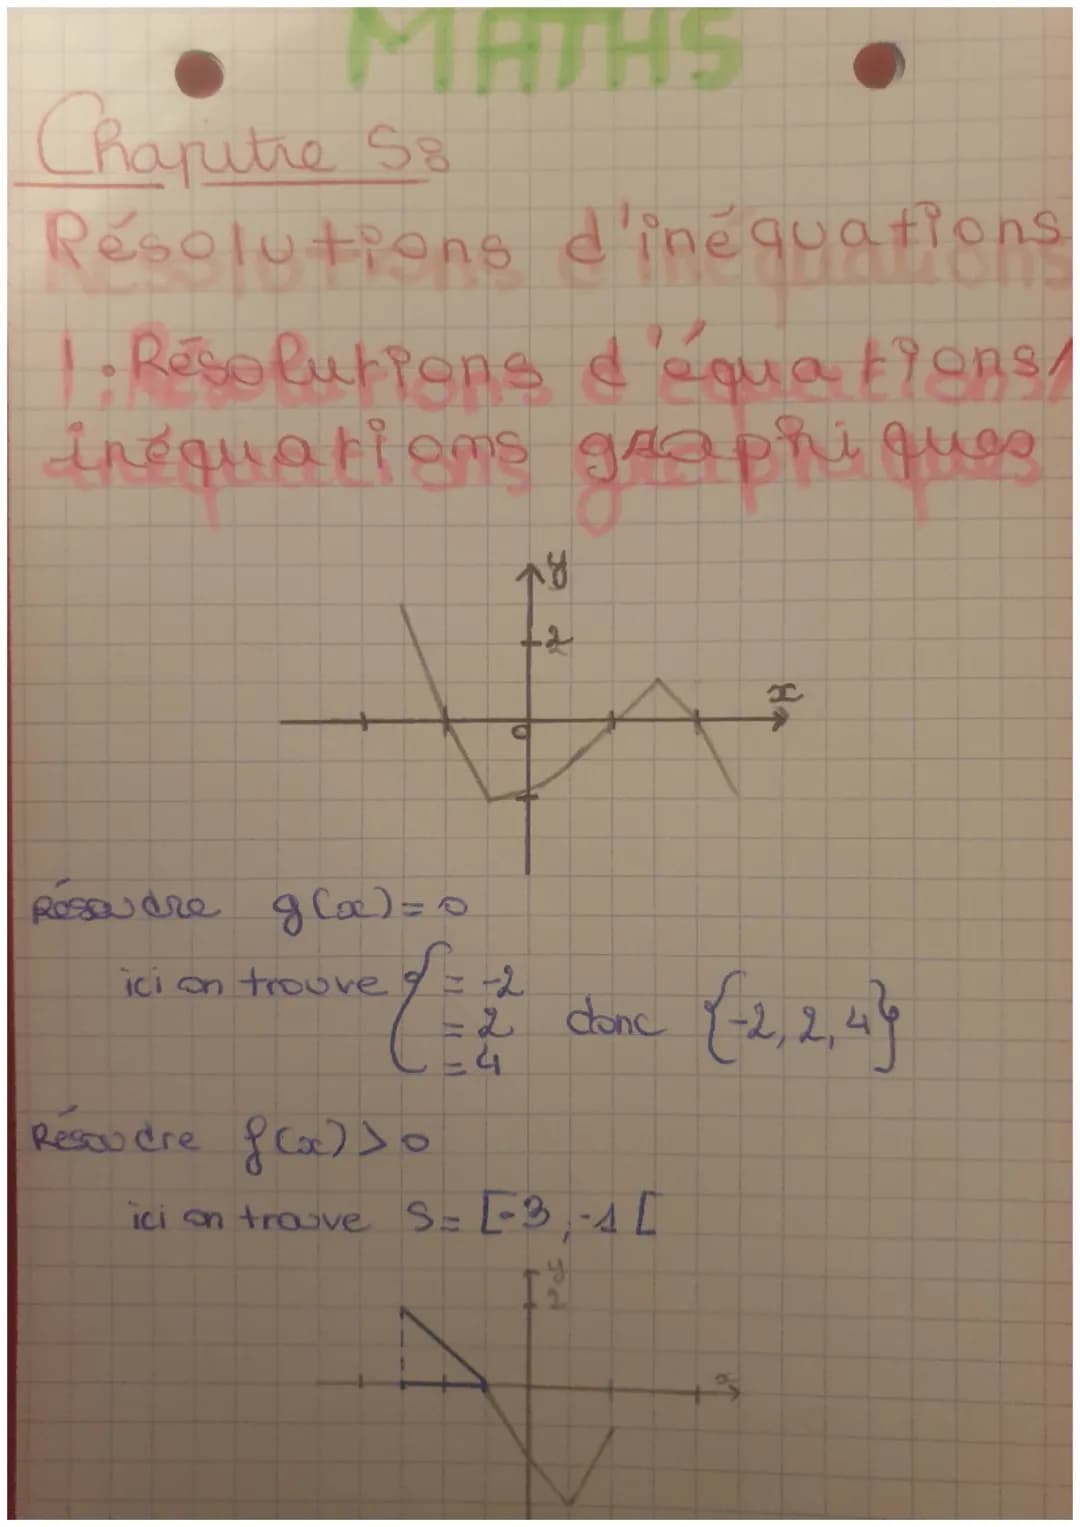 MATHS
Chapitre S8
Résolutions d'inéquations
1. Résolutions d'équations/
inéquations graphiques
y
2
x
0
Résoudre g(x)=0
ici on trouve { = -2
= 2 donc {-2, 2, 4}
= 4
Résoudre f(x)>0
ici on trouve S= [-3, -1 [
y
2
x